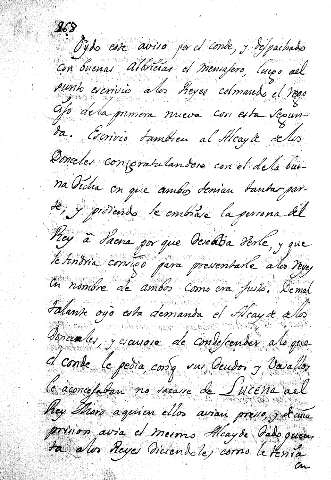 868
Oydo este aviso por el conde, y despachado
con buenas Albricias el mensajero, luego al
punto escrivio a los Reyes colmando el rego
cijo de la primera nueva con esta segun
da. Escrivio tambien al Alcayde de los
Donceles congratulandose con el de la bue
na dicha en que ambos tenian tanta par
te, y pidiendo le embiase la persona del
Rey à Baena por que deseaba verle, y que
le tendria consigo para presentarle a los Reyes
en nombre de ambos como era justo. De mal
talante oyo esta demanda el Alcayde de los
Donceles, y escusose de condescender a lo que
el conde le pedia, conq sus Deudos y Vasallos
le aconsejaban no sacase de LUCENA al
Rey Moro a quien ellos avian preso, y de cuia
prision avia el mesmo Alcayde dado quen
ta a los Reyes diciendoles como le tenia
en